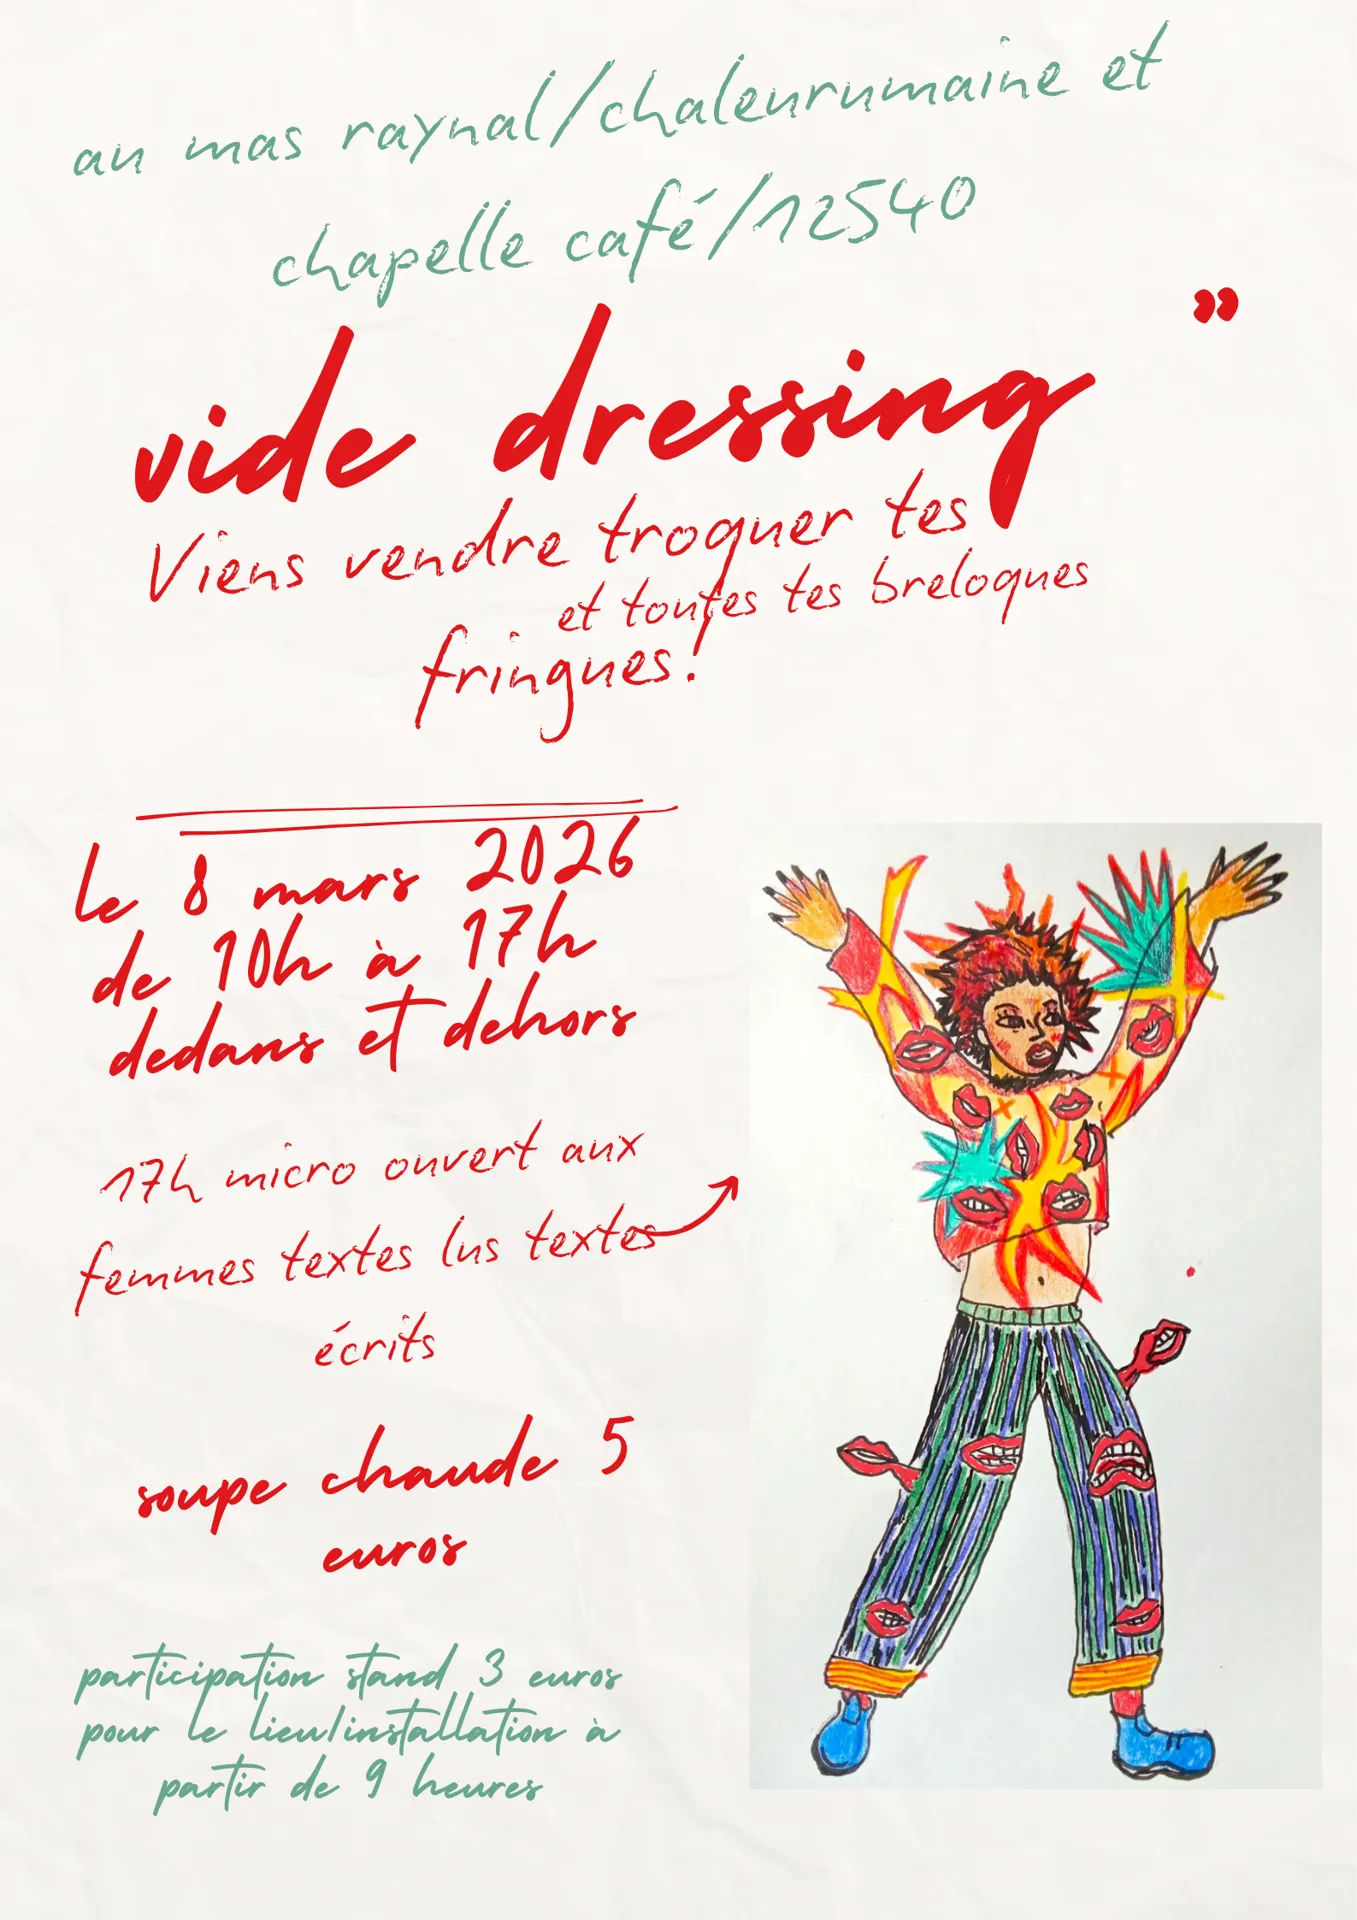 au mas raynal/chaleurumaine et
chapelle café/12540
”
vide dressing
Viens vendre troquer tes
et toutes tes breloques
fringues!
le 8 mars 2026
de 10h à 17h
dedans et dehors
17h micro ouvert aux
femmes textes lus textes
écrits
soupe chaude 5
euros
participation stand 3 euros
pour le lieu/installation à
partir de 9 heures